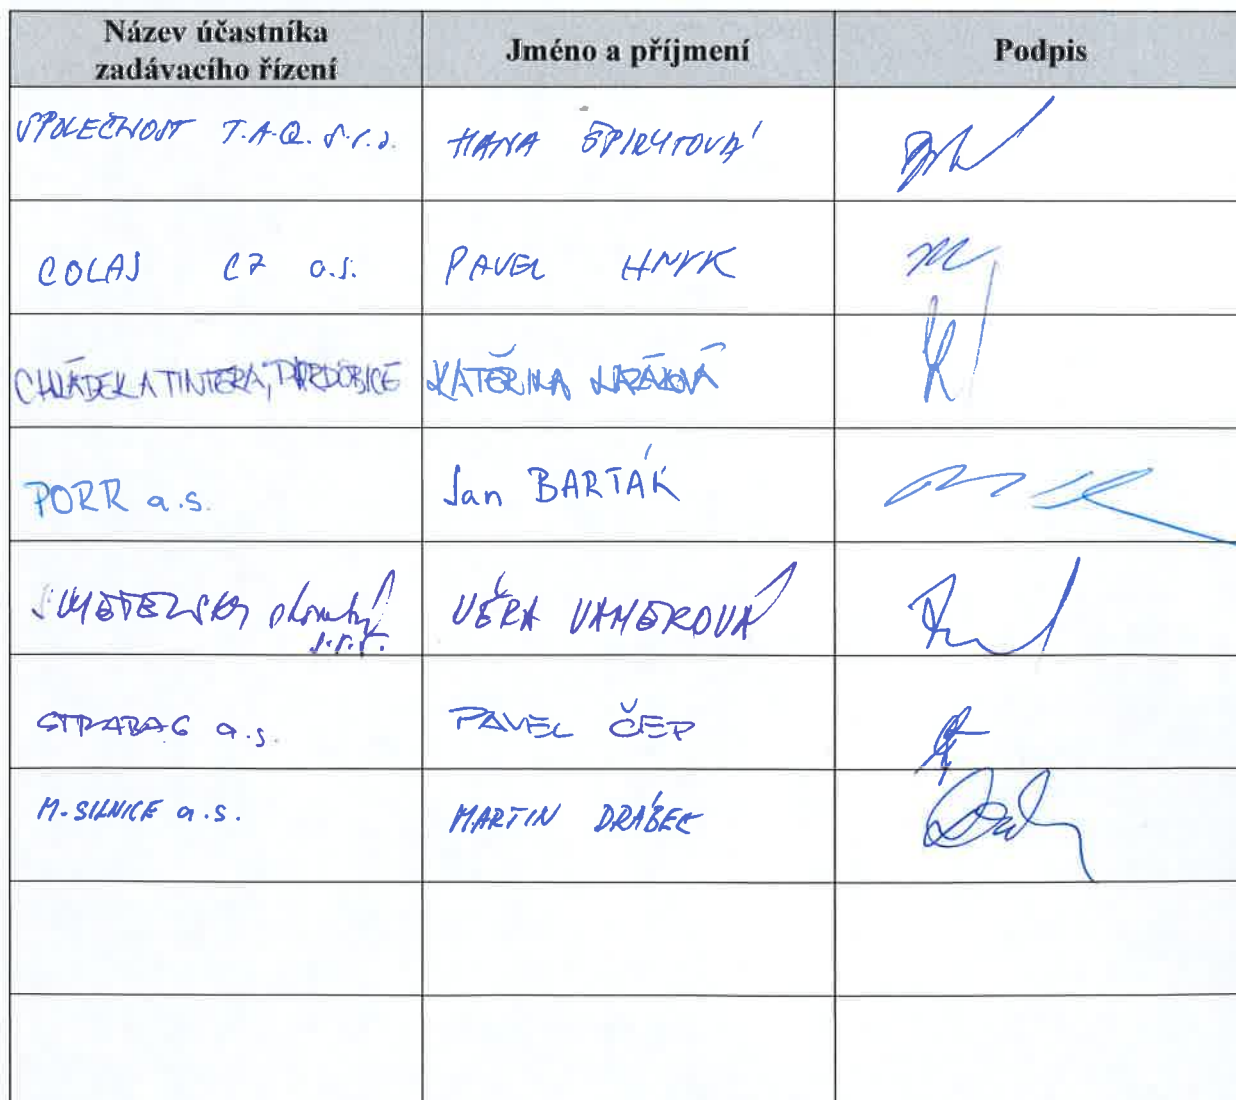 Název účastníka
zadávacího řízení
Jméno a příjmení
Podpis
SPOLEČNOST T.A.Q. s.r.o.
HANA ŠPIRYTOVÁ
COLAS CZ a.s.
PAVEL HNYK
CHLÁDEK A TINTĚRA, PARDUBICE
KATEŘINA
PORR a.s.
Jan BARTÁK
s.r.o.
VĚRA
STRABAG a.s.
PAVEL ČEP
M-SILNICE a.s.
MARTIN DRÁBEK